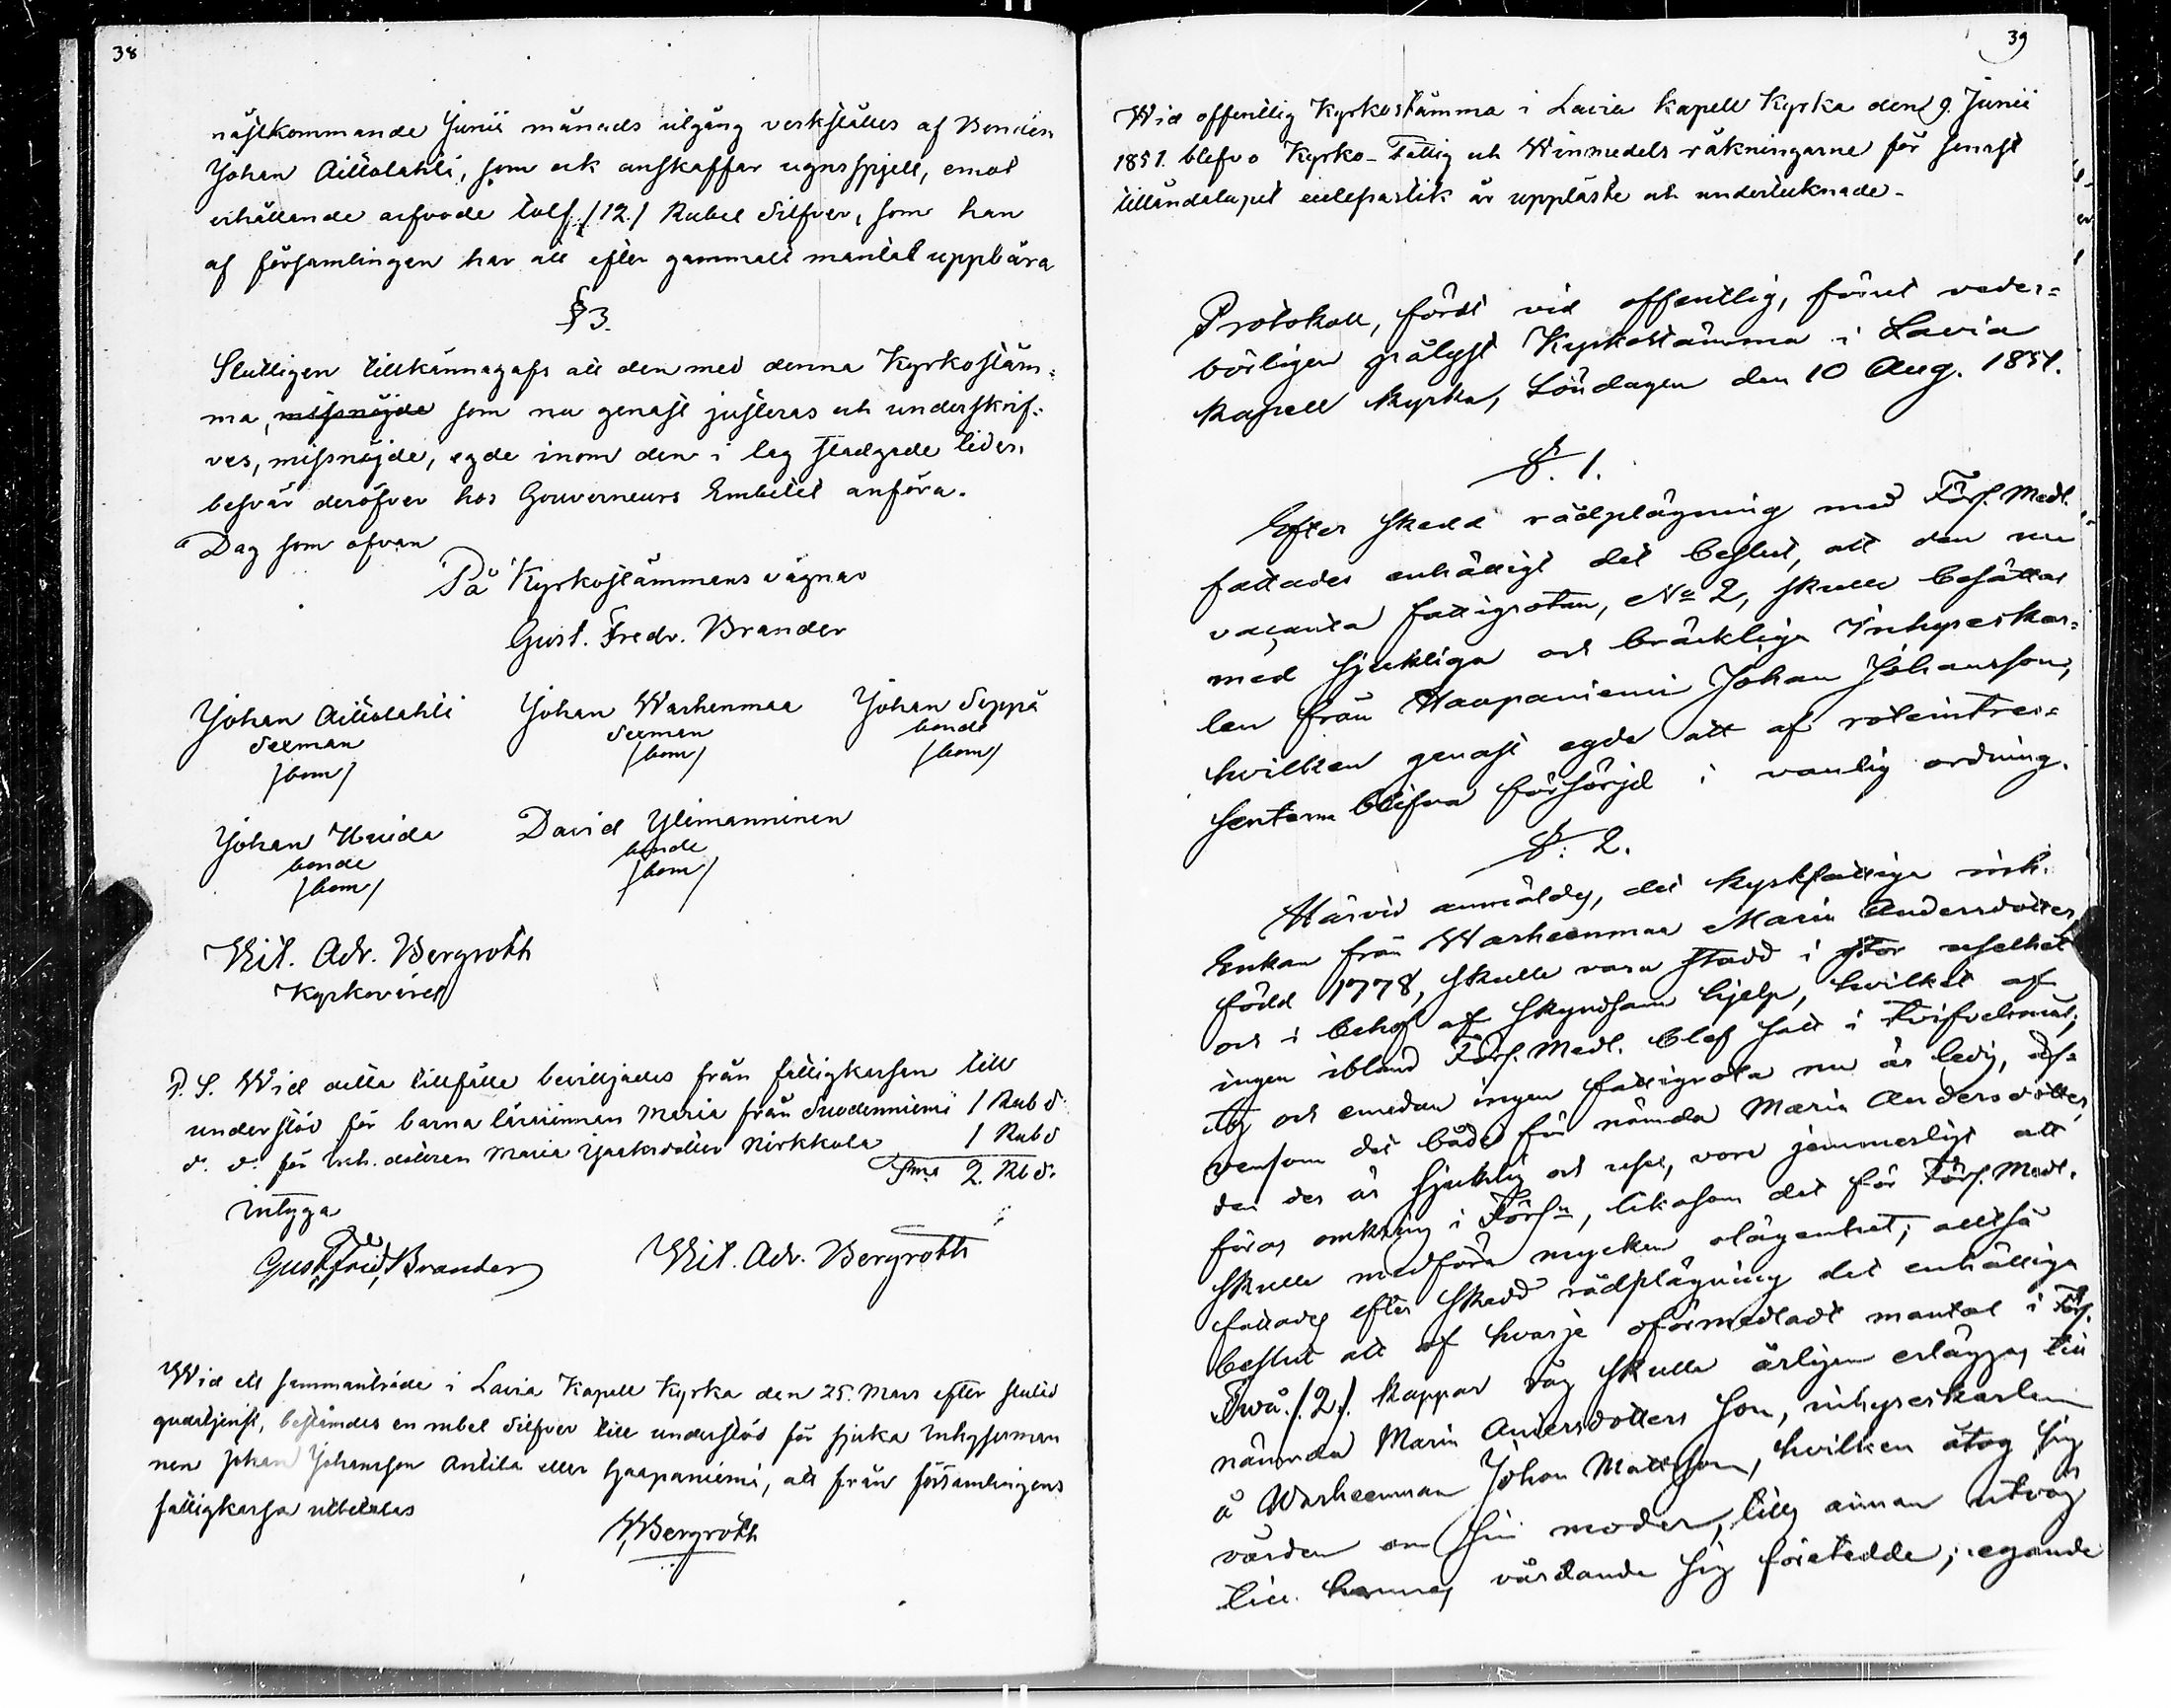 38
nästkommande Junii månads utgång verkställes af Bonden
Johan Aittolahti, som ock anskaffar ugnsspjell, emot
erhållande arfvode tolf /12/ Rubel Silfver, som han
af församlingen har att efter gammalt mantal uppbära
§ 3.
Slutligen tillkännagafs att den med denna Kyrkostäm-
ma, missnöjde som nu genast justeras och underskrif-
ves, missnöjde, egde inom den i lag stadgade tiden
besvär deröfver hos Gouverneurs Embetet anföra.
Dag som ofvan
På Kyrkostämmans vägnar
Gust. Fredr. Brander
Johan Aittolahti Johan Warhenmaa Johan Seppä
Sexman Sexman bonde
/bom/ /bom/ /bom/
Johan Huida David Ylimanninen
bonde bonde
/bom/ /bom/
Wil. Adr. Bergroth
Kyrkovärd
P. S. Wid detta tillfälle beviljades från fattigkassan till
understöd för barna lärarinnan Maria från Suodenniemi 1 Rub S.
d. o. för inh. dottren Maria Jaaksdotter Kirkkola 1 Rub S
Sma 2. Rb S.
intyga
Gust. Fred. Brander Wil. Adr. Bergroth
Wid ett sammanträde i Lavia Kapell Kyrka den 25. Mars efter slutad
gudstjenst, bestämdes en rubel Silfver till understöd för sjuka Inhysesman
nen Johan Johansson Antila eller Haapaniemi, att från församlingens
fattigkassa utbetalas
W Bergroth
39
Wid offentlig Kyrkostämma i Lavia Kapell Kyrka den 9. Junii
1851. blefvo Kyrko- Fattig och Winmedels räkningarne för senast
tilländalupet eclesiastik år uppläste och undertecknade-
Protokoll, fördt vid offentlig, förut veder=
börligen pålyst Kyrkostämma i Lavia
Kapell Kyrka, Söndagen den 10 Aug. 1851.
§. 1.
Efter skedd rådplägning med Förs. Medl.
fattades enhälligt det beslut, att den nu
vacanta fattigrotan, No 2, skulle besättas
med sjukliga och bräckliga Inhyseskar=
len från Haapaniemi Johan Johansson,
hvilken genast egde att af roteintres=
senterne blifva försörjd i vanlig ordning.
§. 2.
Härvid anmäldes, det kyrkfattiga inh.
Enkan från Warheenmaa Maria Andersdotter,
född 1778, skulle vara stadd i stor uselhet
och i behof af skyndsam hjelp, hvilket af
ingen ibland Förs. Medl. blef satt i tvifvelsmål;
ty och emedan ingen fattigrota nu är ledig, äf=
vensom det både för nämnda Maria Andersdotter,
då der är sjuklig och usel, vore jemmerligt att
föras omkring i Förs:n, likasom det för Förs. Medl.
skulle medföra mycken olägenhet; alltså
fattades efter skedd rådplägning det enhälliga
beslut att af hvarje oförmedladt mantal i Förs.
Två /.2./. kappar råg skulle årligen erläggas till
nämnda Maria Andersdotters son, inhyseskarlen
å Warheenmaa Johan Mattsson, hvilken åtog sig
vården om sin moder, tills annan utväg
till hennes vårdande sig företedde; egande